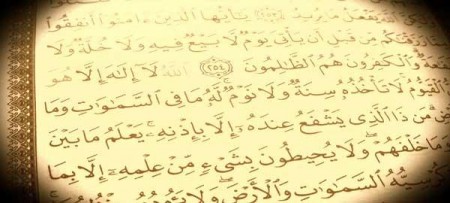 ٱللَّهَ يَفْعَلُ مَا يُرِيدُ ٢٥٣ يَٰٓأَيُّهَا ٱلَّذِينَ ءَامَنُوٓا۟ أَنفِقُوا۟
رَزَقْنَٰكُم مِّن قَبْلِ أَن يَأْتِىَ يَوْمٌ لَّا بَيْعٌ فِيهِ وَلَا خُلَّةٌ وَلَا
وَٱلْكَٰفِرُونَ هُمُ ٱلظَّٰلِمُونَ ٢٥٤ ٱللَّهُ لَآ إِلَٰهَ إِلَّا هُوَ
ٱلْقَيُّومُ لَا تَأْخُذُهُۥ سِنَةٌ وَلَا نَوْمٌ لَّهُۥ مَا فِى ٱلسَّمَٰوَٰتِ وَمَا
مَن ذَا ٱلَّذِى يَشْفَعُ عِندَهُۥٓ إِلَّا بِإِذْنِهِۦ يَعْلَمُ مَا بَيْنَ
وَمَا خَلْفَهُمْ وَلَا يُحِيطُونَ بِشَىْءٍ مِّنْ عِلْمِهِۦٓ إِلَّا بِمَا
ٱلسَّمَٰوَٰتِ وَٱلْأَرْضَ وَلَا